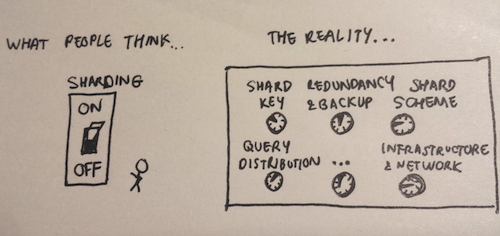 WHAT PEOPLE THINK...
SHARDING
ON
OFF
THE REALITY...
SHARD KEY
REDUNDANCY & BACKUP
SHARD SCHEME
QUERY DISTRIBUTION
...
INFRASTRUCTURE & NETWORK